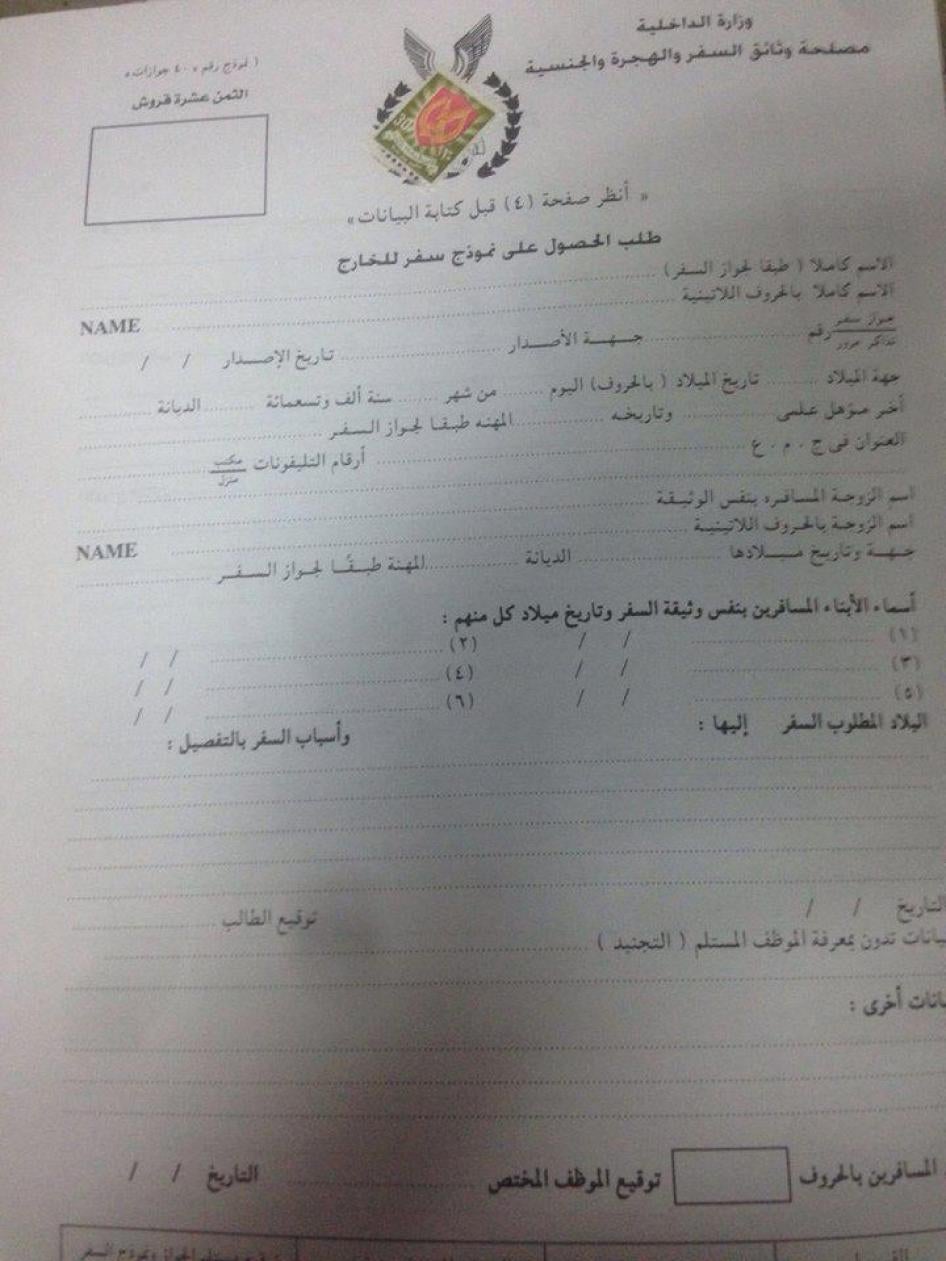 وزارة الداخلية
مصلحة وثائق السفر والهجرة والجنسية
( نموذج رقم « ٤٠ جوازات »
الثمن عشرة قروش
30
« أنظر صفحة (٤) قبل كتابة البيانات »
طلب الحصول على نموذج سفر للخارج
الاسم كاملا ( طبقا لجواز السفر)
الاسم كاملا بالحروف اللاتينية NAME
جواز سفر / تذاكر مرور رقم جهة الأصدار تاريخ الإصدار / /
جهة الميلاد تاريخ الميلاد ( بالحروف) اليوم من شهر سنة ألف وتسعمائة الديانة
أخر مؤهل علمى وتاريخه المهنه طبقا لجواز السفر
العنوان فى ج . م . ع أرقام التليفونات مكتب / منزل
اسم الزوجة المسافره بنفس الوثيقة
اسم الزوجة بالحروف اللاتينية NAME
جهة وتاريخ ميلادها الديانة المهنة طبقًا لجواز السفر
أسماء الأبناء المسافرين بنفس وثيقة السفر وتاريخ ميلاد كل منهم :
(١) / / (٢) / /
(٣) / / (٤) / /
(٥) / / (٦) / /
البلاد المطلوب السفر إليها : وأسباب السفر بالتفصيل :
التاريخ / / توقيع الطالب
بيانات تدون بمعرفة الموظف المستلم ( التجنيد )
انات أخرى :
المسافرين بالحروف توقيع الموظف المختص التاريخ / /